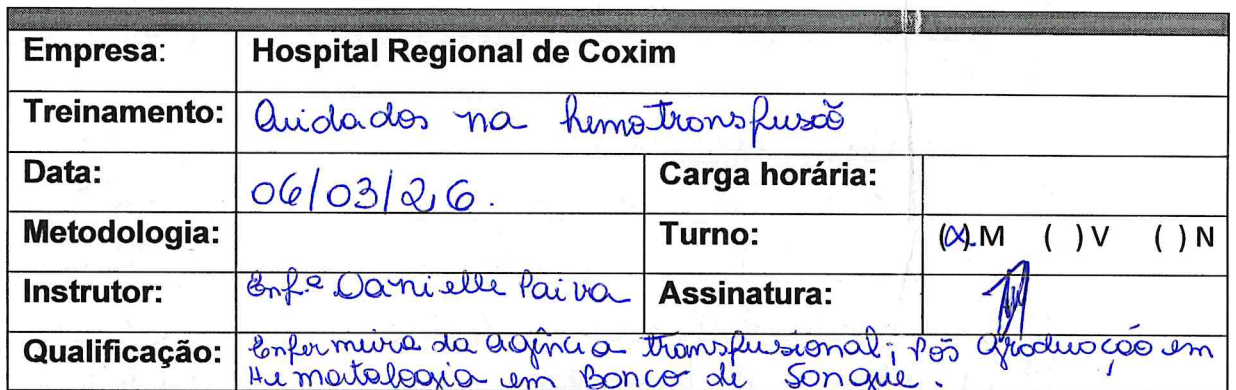 Empresa: Hospital Regional de Coxim
Treinamento: Cuidados na hemotransfusão
Data: 06/03/26. Carga horária:
Metodologia: Turno: (X) M ( ) V ( ) N
Instrutor: Enfª Danielle Paiva Assinatura:
Qualificação: Enfermeira da agência transfusional; Pós Graduação em
Hematologia em Banco de Sangue.